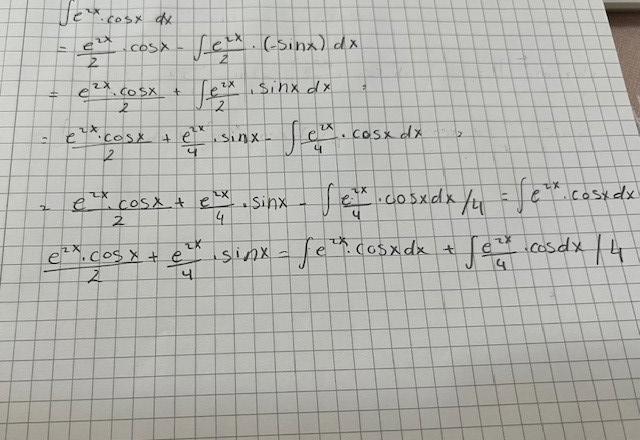 ∫e^2x · cosx dx
= e^2x/2 · cosx - ∫e^2x/2 · (-sinx) dx
= e^2x · cosx/2 + ∫e^2x/2 · sinx dx
= e^2x · cosx/2 + e^2x/4 · sinx - ∫e^2x/4 · cosx dx
= e^2x · cosx/2 + e^2x/4 · sinx - ∫e^2x/4 · cosxdx /4 = ∫e^2x · cosxdx
e^2x · cosx/2 + e^2x/4 · sinx = ∫e^2x · cosxdx + ∫e^2x/4 · cosdx /4